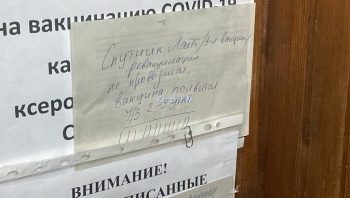 на вакцинацию COVID-19
ка
ксеро
С
Спутник Лайт/3-я вакцина/
ревакцинация
не проводится,
вакцина появится
ч/з 2-3 дня
ВНИМАНИЕ!
ИСАННЫЕ